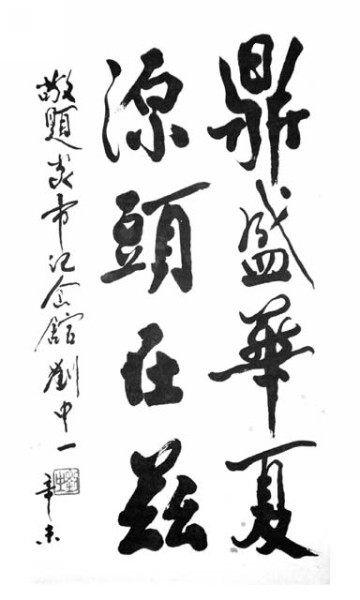 鼎盛華夏
源頭在兹
敬題炎帝記念館劉中一
辛未